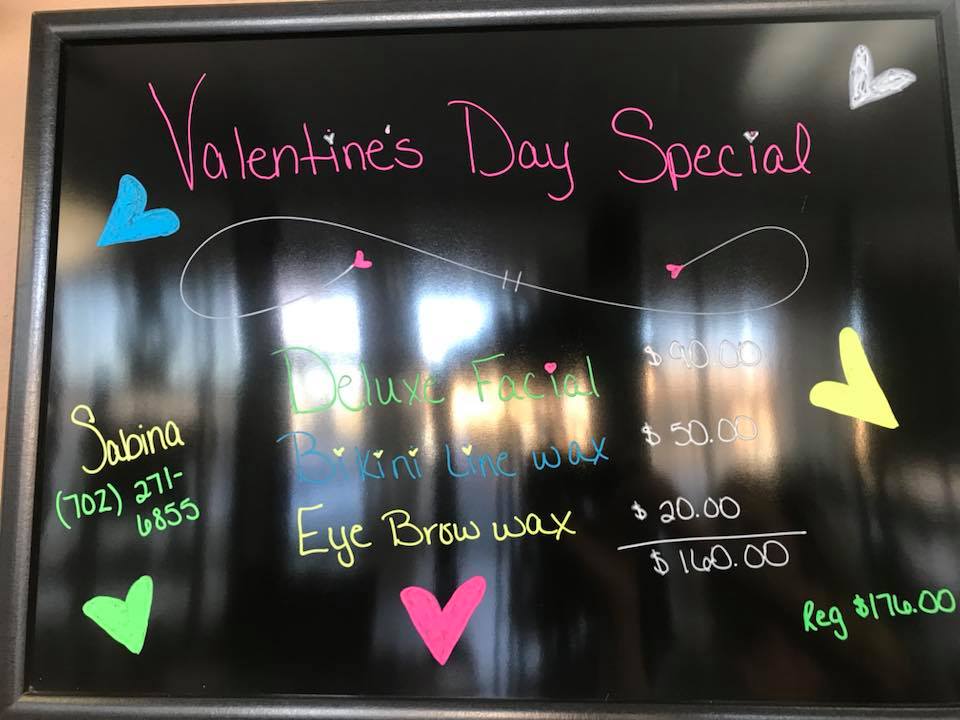 Valentine's Day Special
Deluxe Facial $90.00
Bikini Line wax $50.00
Eye Brow wax $20.00
$160.00
Reg $176.00
Sabina
(702) 271-
6855